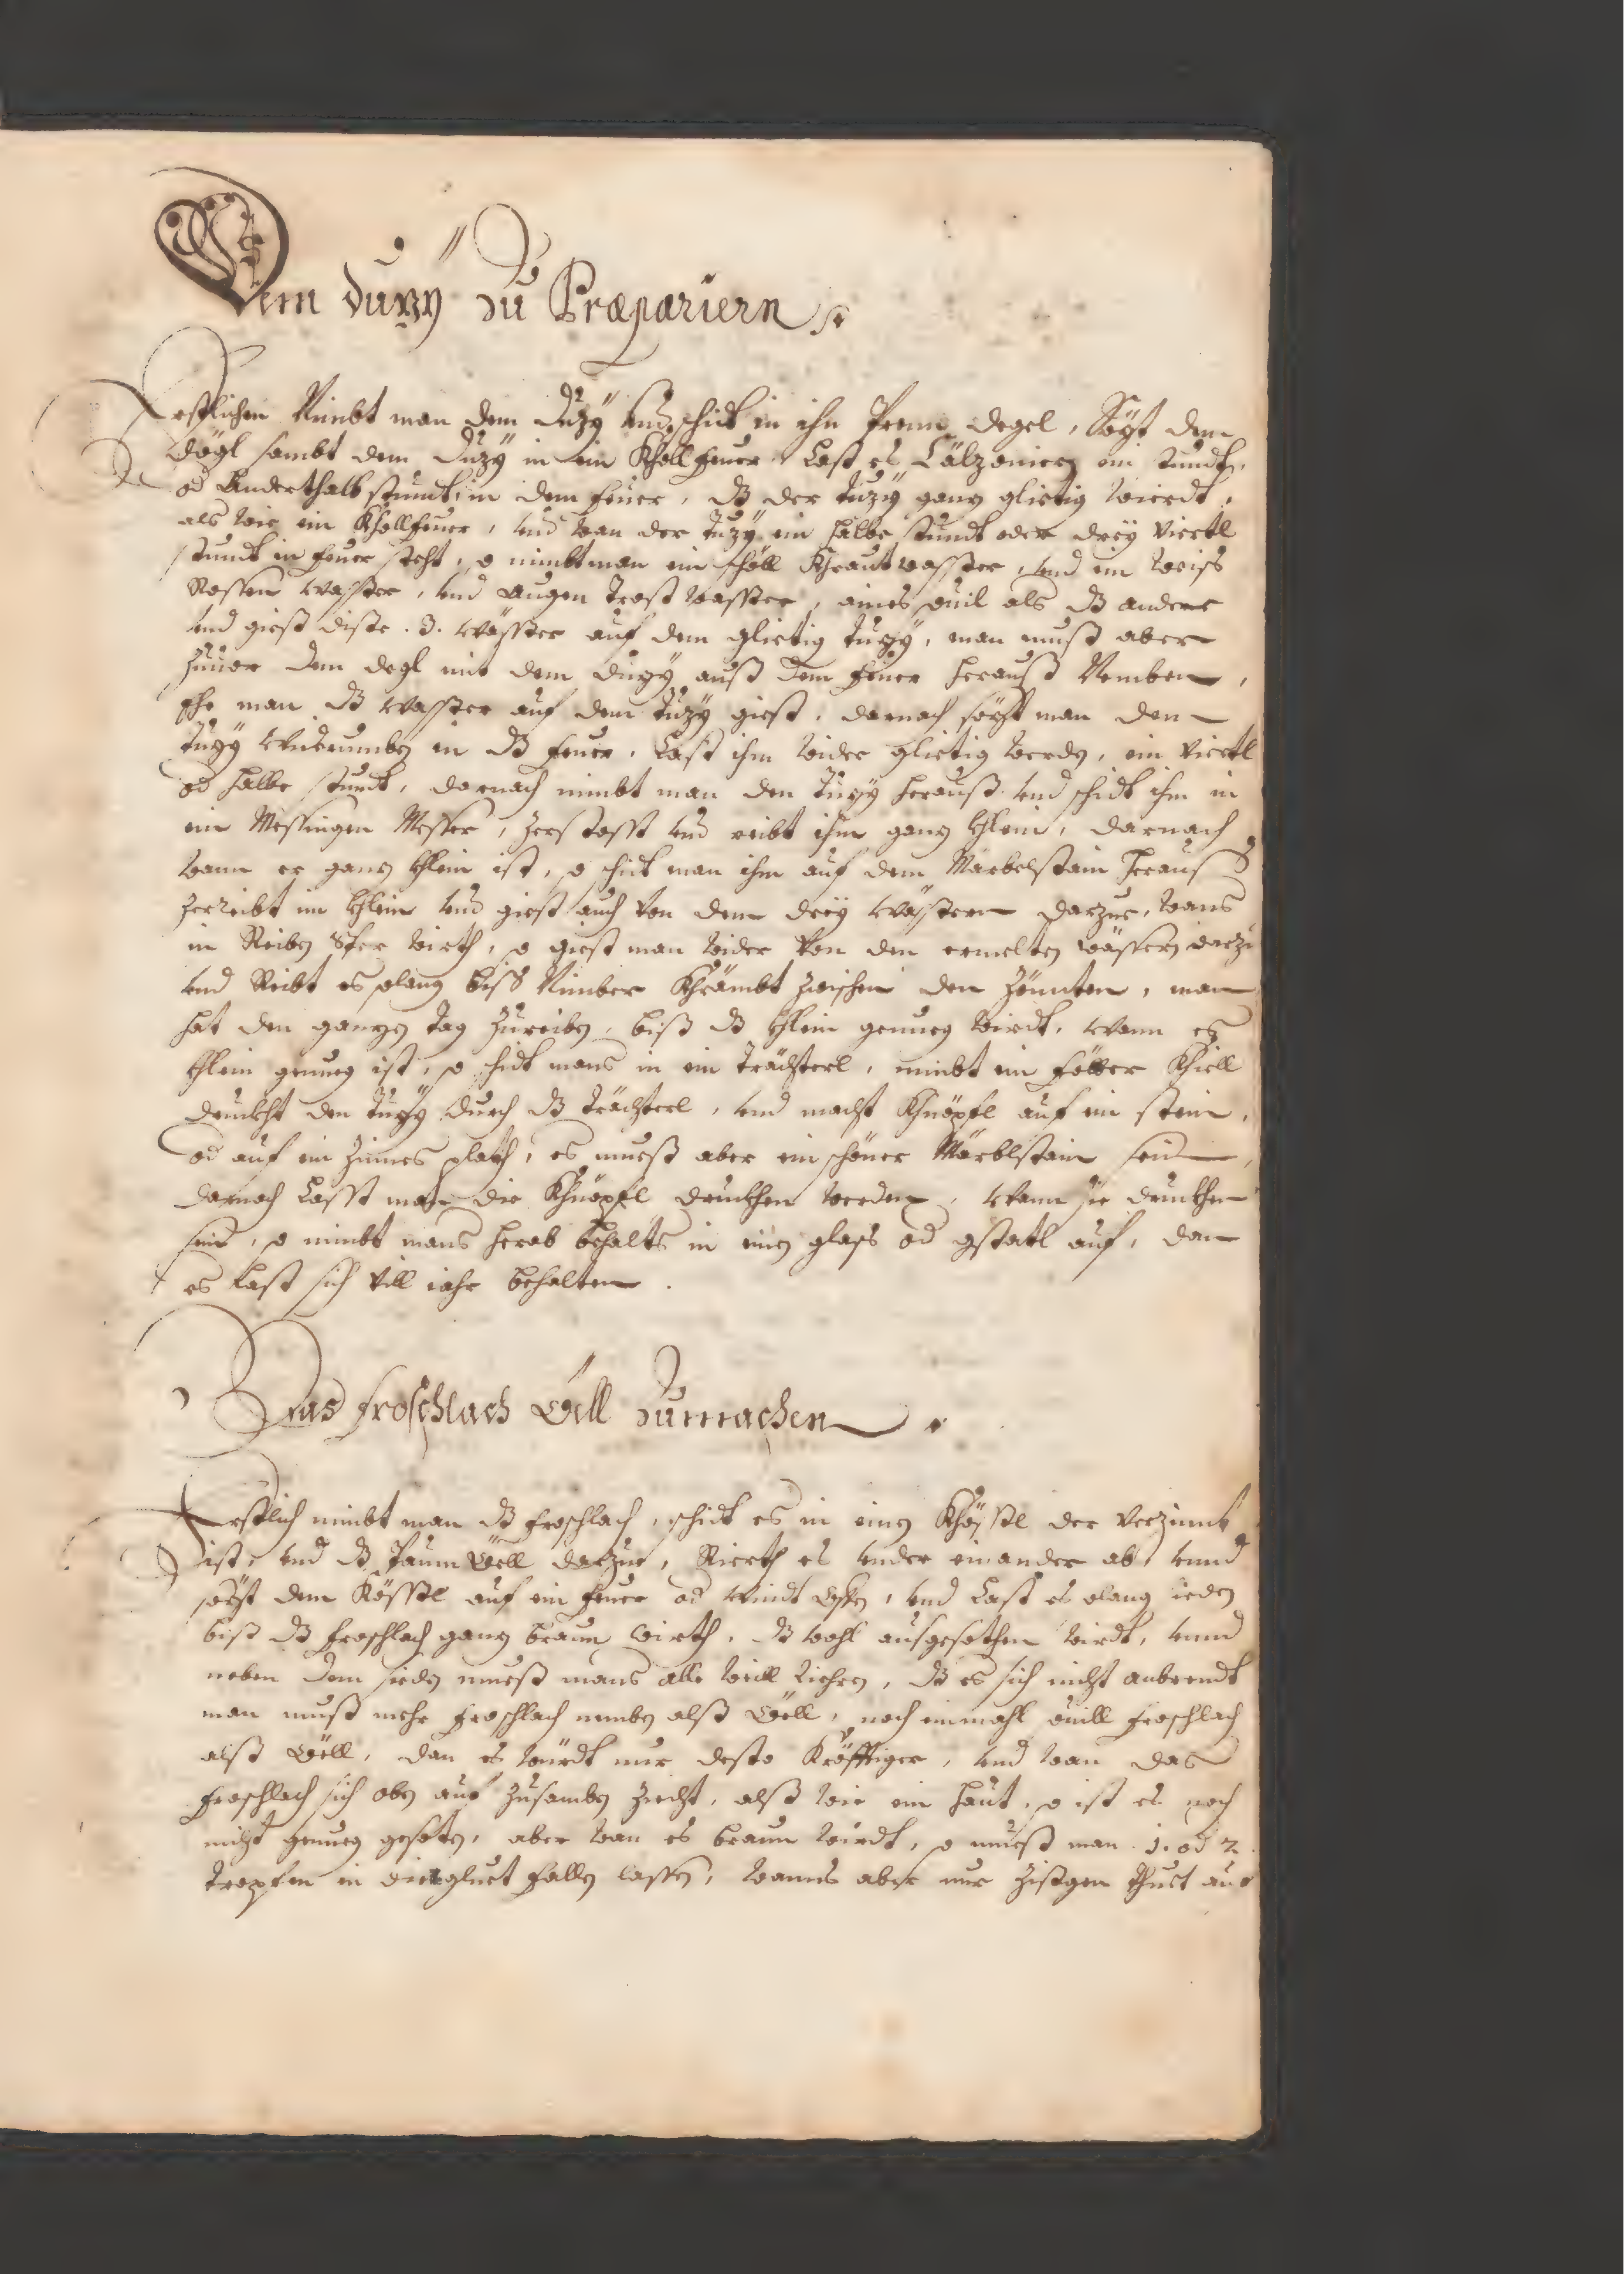 Dem duzÿ zu Præpariern
Erstlichen Nimbt man dem Duzÿ und schidt in ihn Prenn degel, Sözt dem
dögl sambt dem Duzÿ in ein Kholl feuer Last es Cälzonieren ein stundt,
od Anderthalb stundt, in dem feuer, dß der Tuzÿ ganz glietig wierdt,
als wie ein Khollfeuer, und wan der Tuzÿ ein halbe stundt oder dreÿ viertl
stundt in feuer steht, so nimbt man ein schöll Khraut wasser, und ein weiss
Rossen wasser, und Augen Trost wasser, aines souil als dß andere
und giest diße .3. wässer auf dem glietig Tuzÿ, man muß aber
zuuor dem degl mit dem Duzÿ auß dem feuer herauß Nemben,
Ehe man dß wasser auf dem Tuzÿ giest, darnach sözt man den
Tuzÿ widerumben in dß feuer, Last ihm wider glietig werden, ein viertl
od halbe stundt, darnach nimbt man den Tuzÿ herauß und schidt ihm in
ein Messingen Messer, zerstosst und reibt ihm ganz khlein, darnach
wann er ganz khlein ist, so schidt man ihm auf dem Märbelstain heraus
zerreibt im khlein und giest auch von dem dreÿ wässern darzue, wans
in Reiben wirth, so giest man wider von den ermelten wässern darzu
und Reibt es solang biss Nimber Khrämbt zwischen den Zönnten, man
hat den ganzen Tag zureiben, biß dß khlein genueg wirdt, wann es
khlein genueg ist, so schidt mans in ein Trächterl, nimbt ein föder Khiell
druckht den Tuzÿ durch dß Trächterl, und macht Khnöpfl auf ein stein,
od auf ein Zinnes plath, es mueß aber ein schöner Märblstain sein,
darnach Lasst man die Khnöpfl druckhen werden, wann sie druckhen
sind, so nimbt mans herab behalts in einen glass od gstatl auf, dan
es Last sich vill iahr behalten.
Das froschlach Öell zumachen
Erstlich nimbt man dß froschlach, schidt es in einen Khössl der verzinnt
ist, und dß Paum Öell darzue, Rierth es under einander ab, unnd
sözt dem Kössl auf ein feuer od windt ofen, und Last es solang sieden
biß dß froschlach ganz braun wirth, dß wohl aufgesothen wirdt, unnd
neben dem sieden mueß mans alle weill riehren, dß es sich nicht anbrendt
man muß mehr froschlach nemben alß Öell, noch einmahl souill froschlach
alß Öell, dan es würdt nur desto Kröfftiger, und wan das
froschlach sich oben auf zusamben ziecht, alß wie ein haut, so ist es noch
nicht genueg gesoten, aber wan es braun wirdt, so mueß man .1. od 2.
Tropfen in die gluet fallen lassen, wanns aber nur zißgen thuet auf